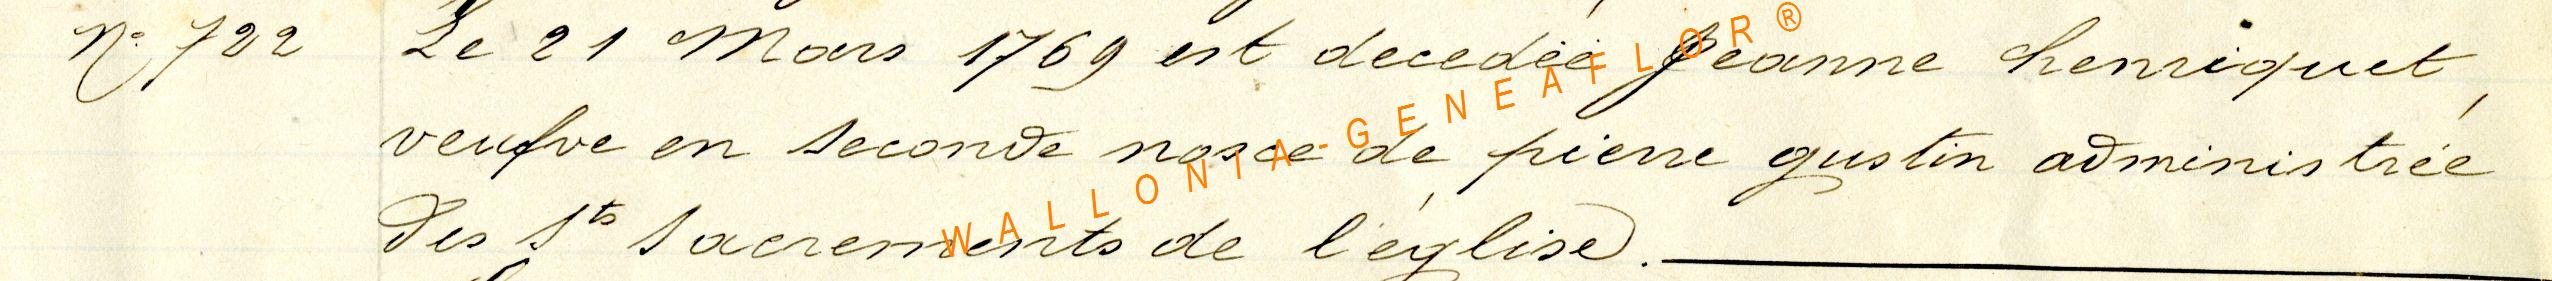 N° 722 Le 21 Mars 1769 est decedée Jeanne henriquet
veufve en seconde nosce de pierre gustin administrée
des Sts Sacrements de l'église.
WALLONIA-GENEAFLOR®